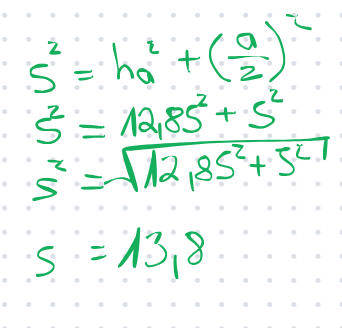 s² = ha² + (a/2)²
s² = 12,85² + 5²
s² = √12,85² + 5²
s = 13,8